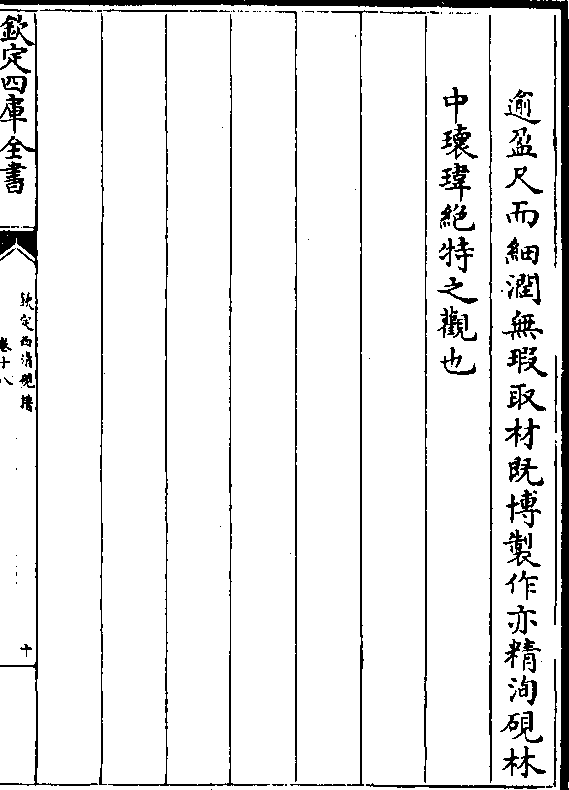 逾盈尺而細潤無瑕取材既博製作亦精洵硯林
中瓌瑋絶特之觀也
欽定四庫全書
欽定西清硯譜
卷十八
十